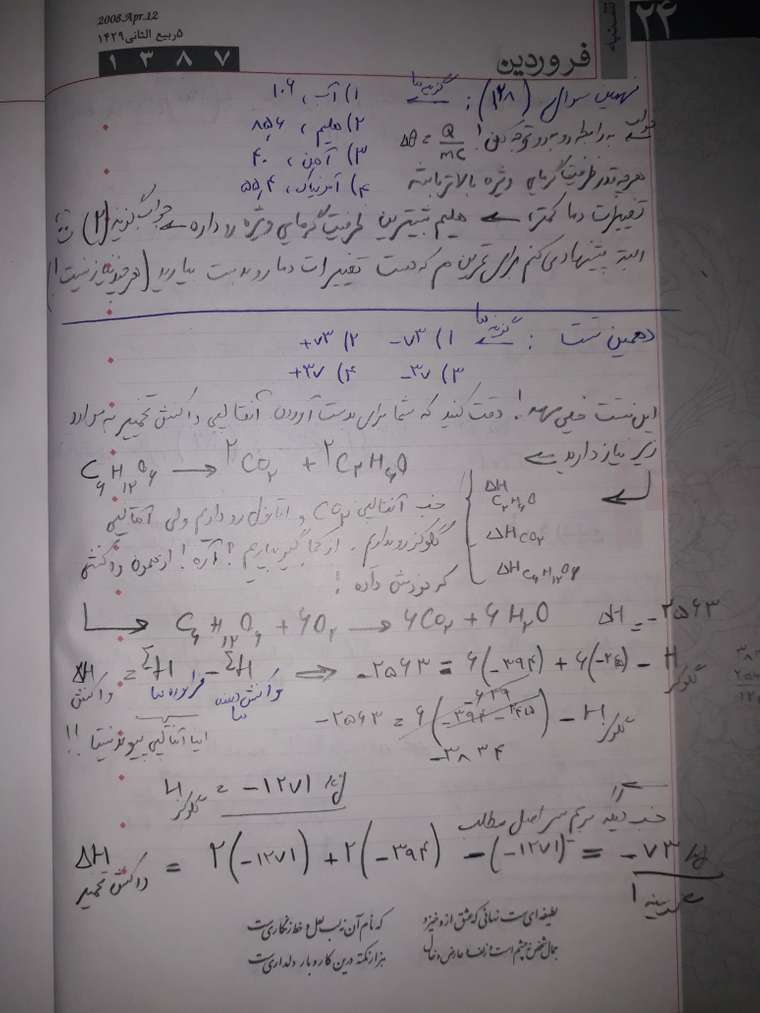 2008.Apr.12
۵ربیع الثانی۱۴۲۹
۱ ۳ ۸ ۷
فروردین
۲۴
نهمین سوال (۱۲۸): گزینه ها ۱) آب، ۱۰۶
۲) هلیم، ۸۵۶
۳) آهن، ۴۰
۴) آمونیاک، ۵۵٫۴
جواب به رابطه روبرو توجه کنین! Δθ = Q/mc
هر چقدر ظرفیت گرمایی ویژه بالاتر باشه
تغییرات دما کمتر، هلیم بیشترین ظرفیت گرمایی ویژه رو داره جواب گزینه (۲)
البته پیشنهاد می کنم برای تمرین هم که هست تغییرات دما رو بدست بیارید
دهمین تست : گزینه ها ۱) ۷۳- ۲) ۷۳+
۳) ۳۷- ۴) ۳۷+
این تست خیلی مهمه! دقت کنید که شما برای بدست آوردن آنتالپی واکنش تخمیر به موارد
زیر نیاز دارید
C₆H₁₂O₆ → ۲CO₂ + ۲C₂H₆O
ΔH C₂H₆O
ΔH CO₂
ΔH C₆H₁₂O₆
خب آنتالپی CO₂ و اتانول رو داریم ولی آنتالپی
گلوکز رو نداریم. از کجا گیر بیاریم؟! آره! از همون واکنشی
که خودش داده!
C₆H₁₂O₆ + ۶O₂ → ۶CO₂ + ۶H₂O ΔH = -۲۵۶۳
ΔH واکنش = ΣH فراورده ها - ΣH واکنش دهنده ها ⇐ -۲۵۶۳ = ۶(-۳۹۴) + ۶(-۲۴۵) - H گلوکز
-۲۵۶۳ = ۶(-۳۹۴-۲۴۵) - H گلوکز
-۶۳۹
-۳۸۳۴
اینا آنتالپی پیوند نیستا !!
H گلوکز = -۱۲۷۱ kj
خب دیگه بریم سر اصل مطلب
ΔH واکنش تخمیر = ۲(-۱۲۷۱) + ۲(-۳۹۴) - (-۱۲۷۱) = -۷۳ kj
گزینه ۱
لطیفه‌ای‌ست نهانی که عشق ازو خیزد که نام آن نه لب لعل و خط زنگاری‌ست
جمال شخص نه چشم است و زلف و عارض و خال هزار نکته درین کار و بار دلداری‌ست